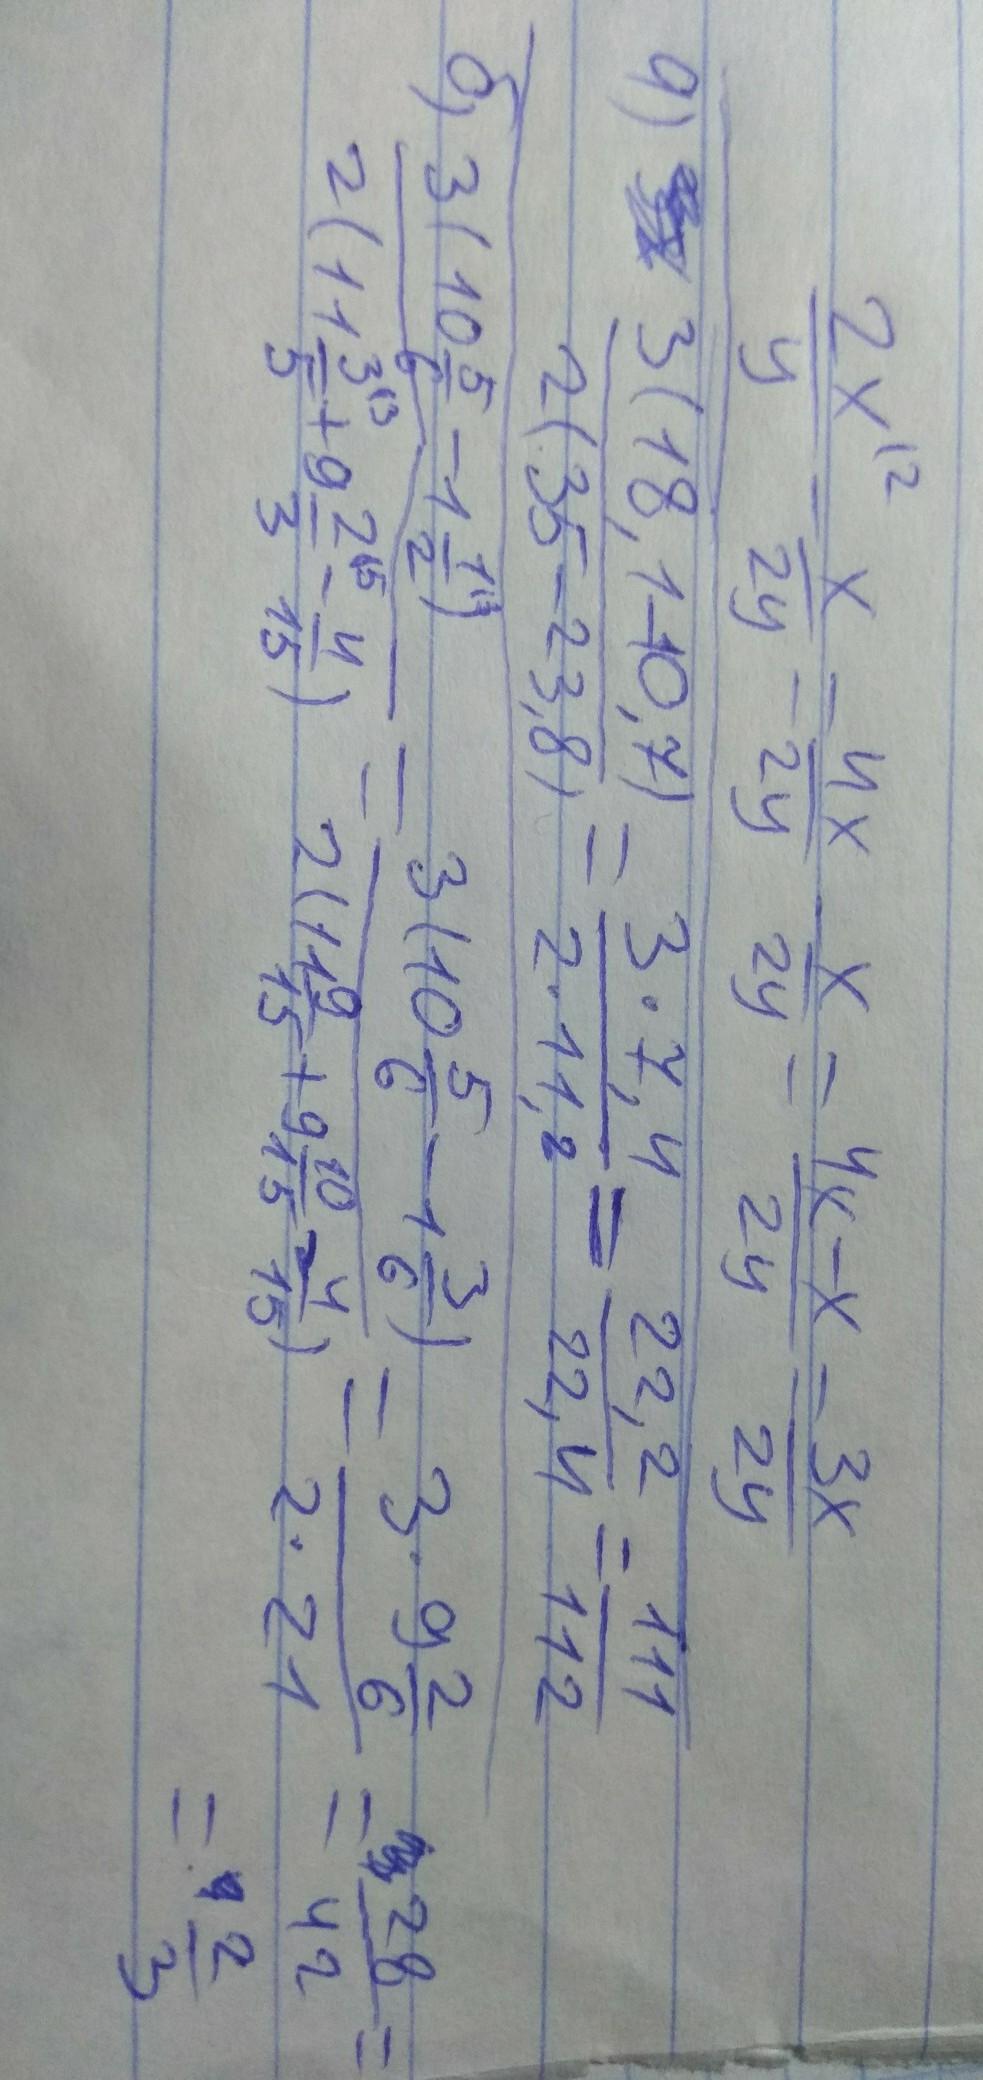 2x⁽² / y - x / 2y = 4x / 2y - x / 2y = 4x - x / 2y = 3x / 2y
а) 3(18,1-10,7) / 2(35-23,8) = 3·7,4 / 2·11,2 = 22,2 / 22,4 = 111 / 112
б) 3(10 5/6 - 1 1⁽³/2) / 2(11 3⁽³/5 + 9 2⁽⁵/3 - 4/15) = 3(10 5/6 - 1 3/6) / 2(11 9/15 + 9 10/15 - 4/15) = 3·9 2/6 / 2·21 = 28 / 42 =
= 2 / 3